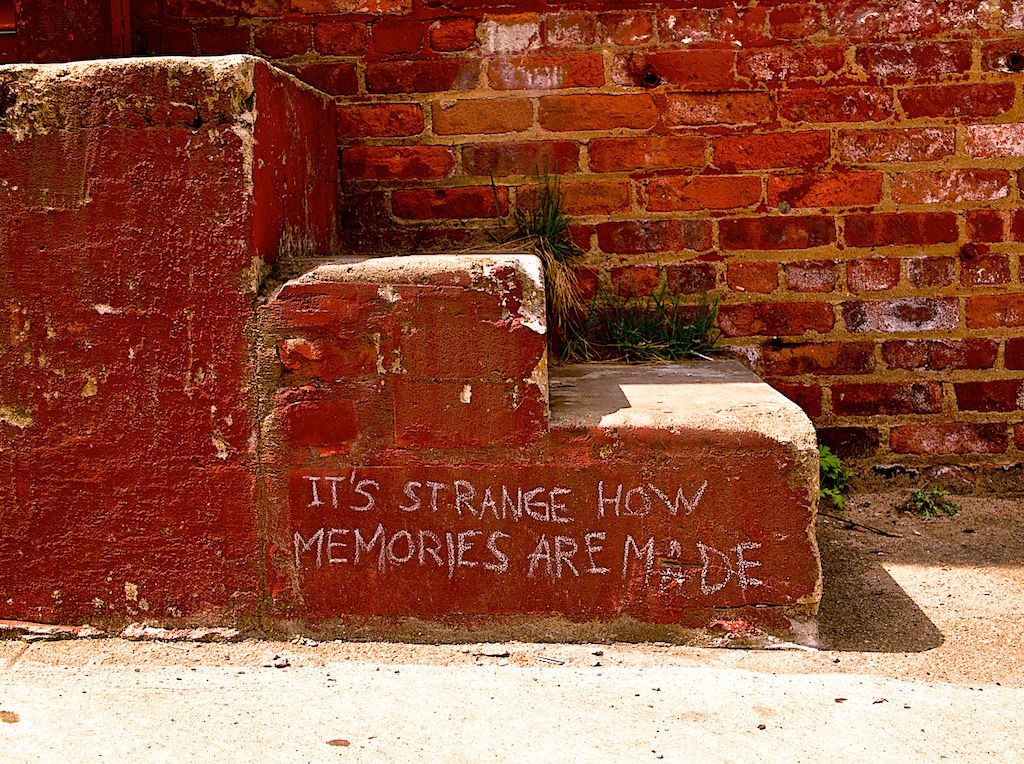 IT'S STRANGE HOW
MEMORIES ARE MADE